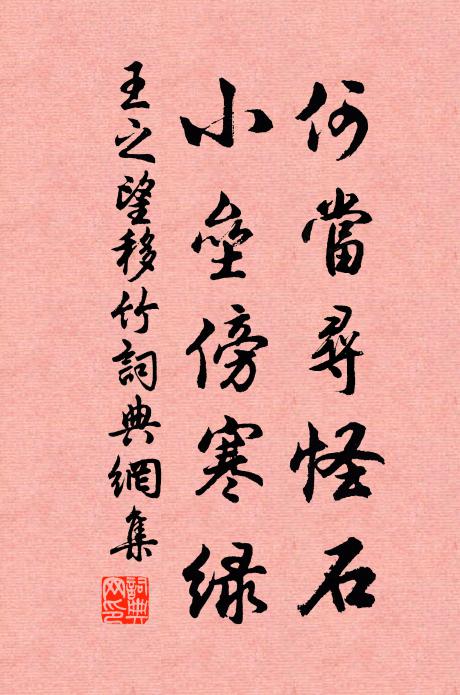 何當尋怪石
小壘傍寒緑
王之望移竹詞典網集
詞典網印